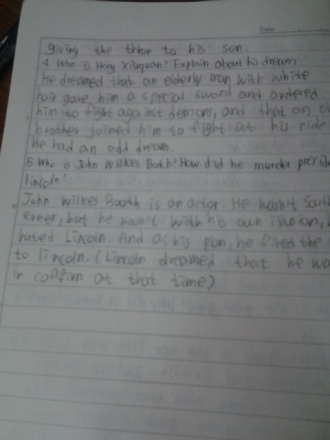 Date
giving the thron to his son.
4. Who is Hong Xiuquan? Explain about his dream
He dreamed that an elderly man with white
hair gave him a special sword and ordered
him to fight against demons, and that an
brother joined him to fight at his side
He had an odd dream.
5. Who is John Wilkes Booth? How did he murder
lincoln?
John Wilkes Booth is an actor. He wasn't
erner, but he with his own illusion,
hated Lincoln. And as his plan, he fired the
to lincoln. (Lincoln dreamed that he
in coffin at that time)